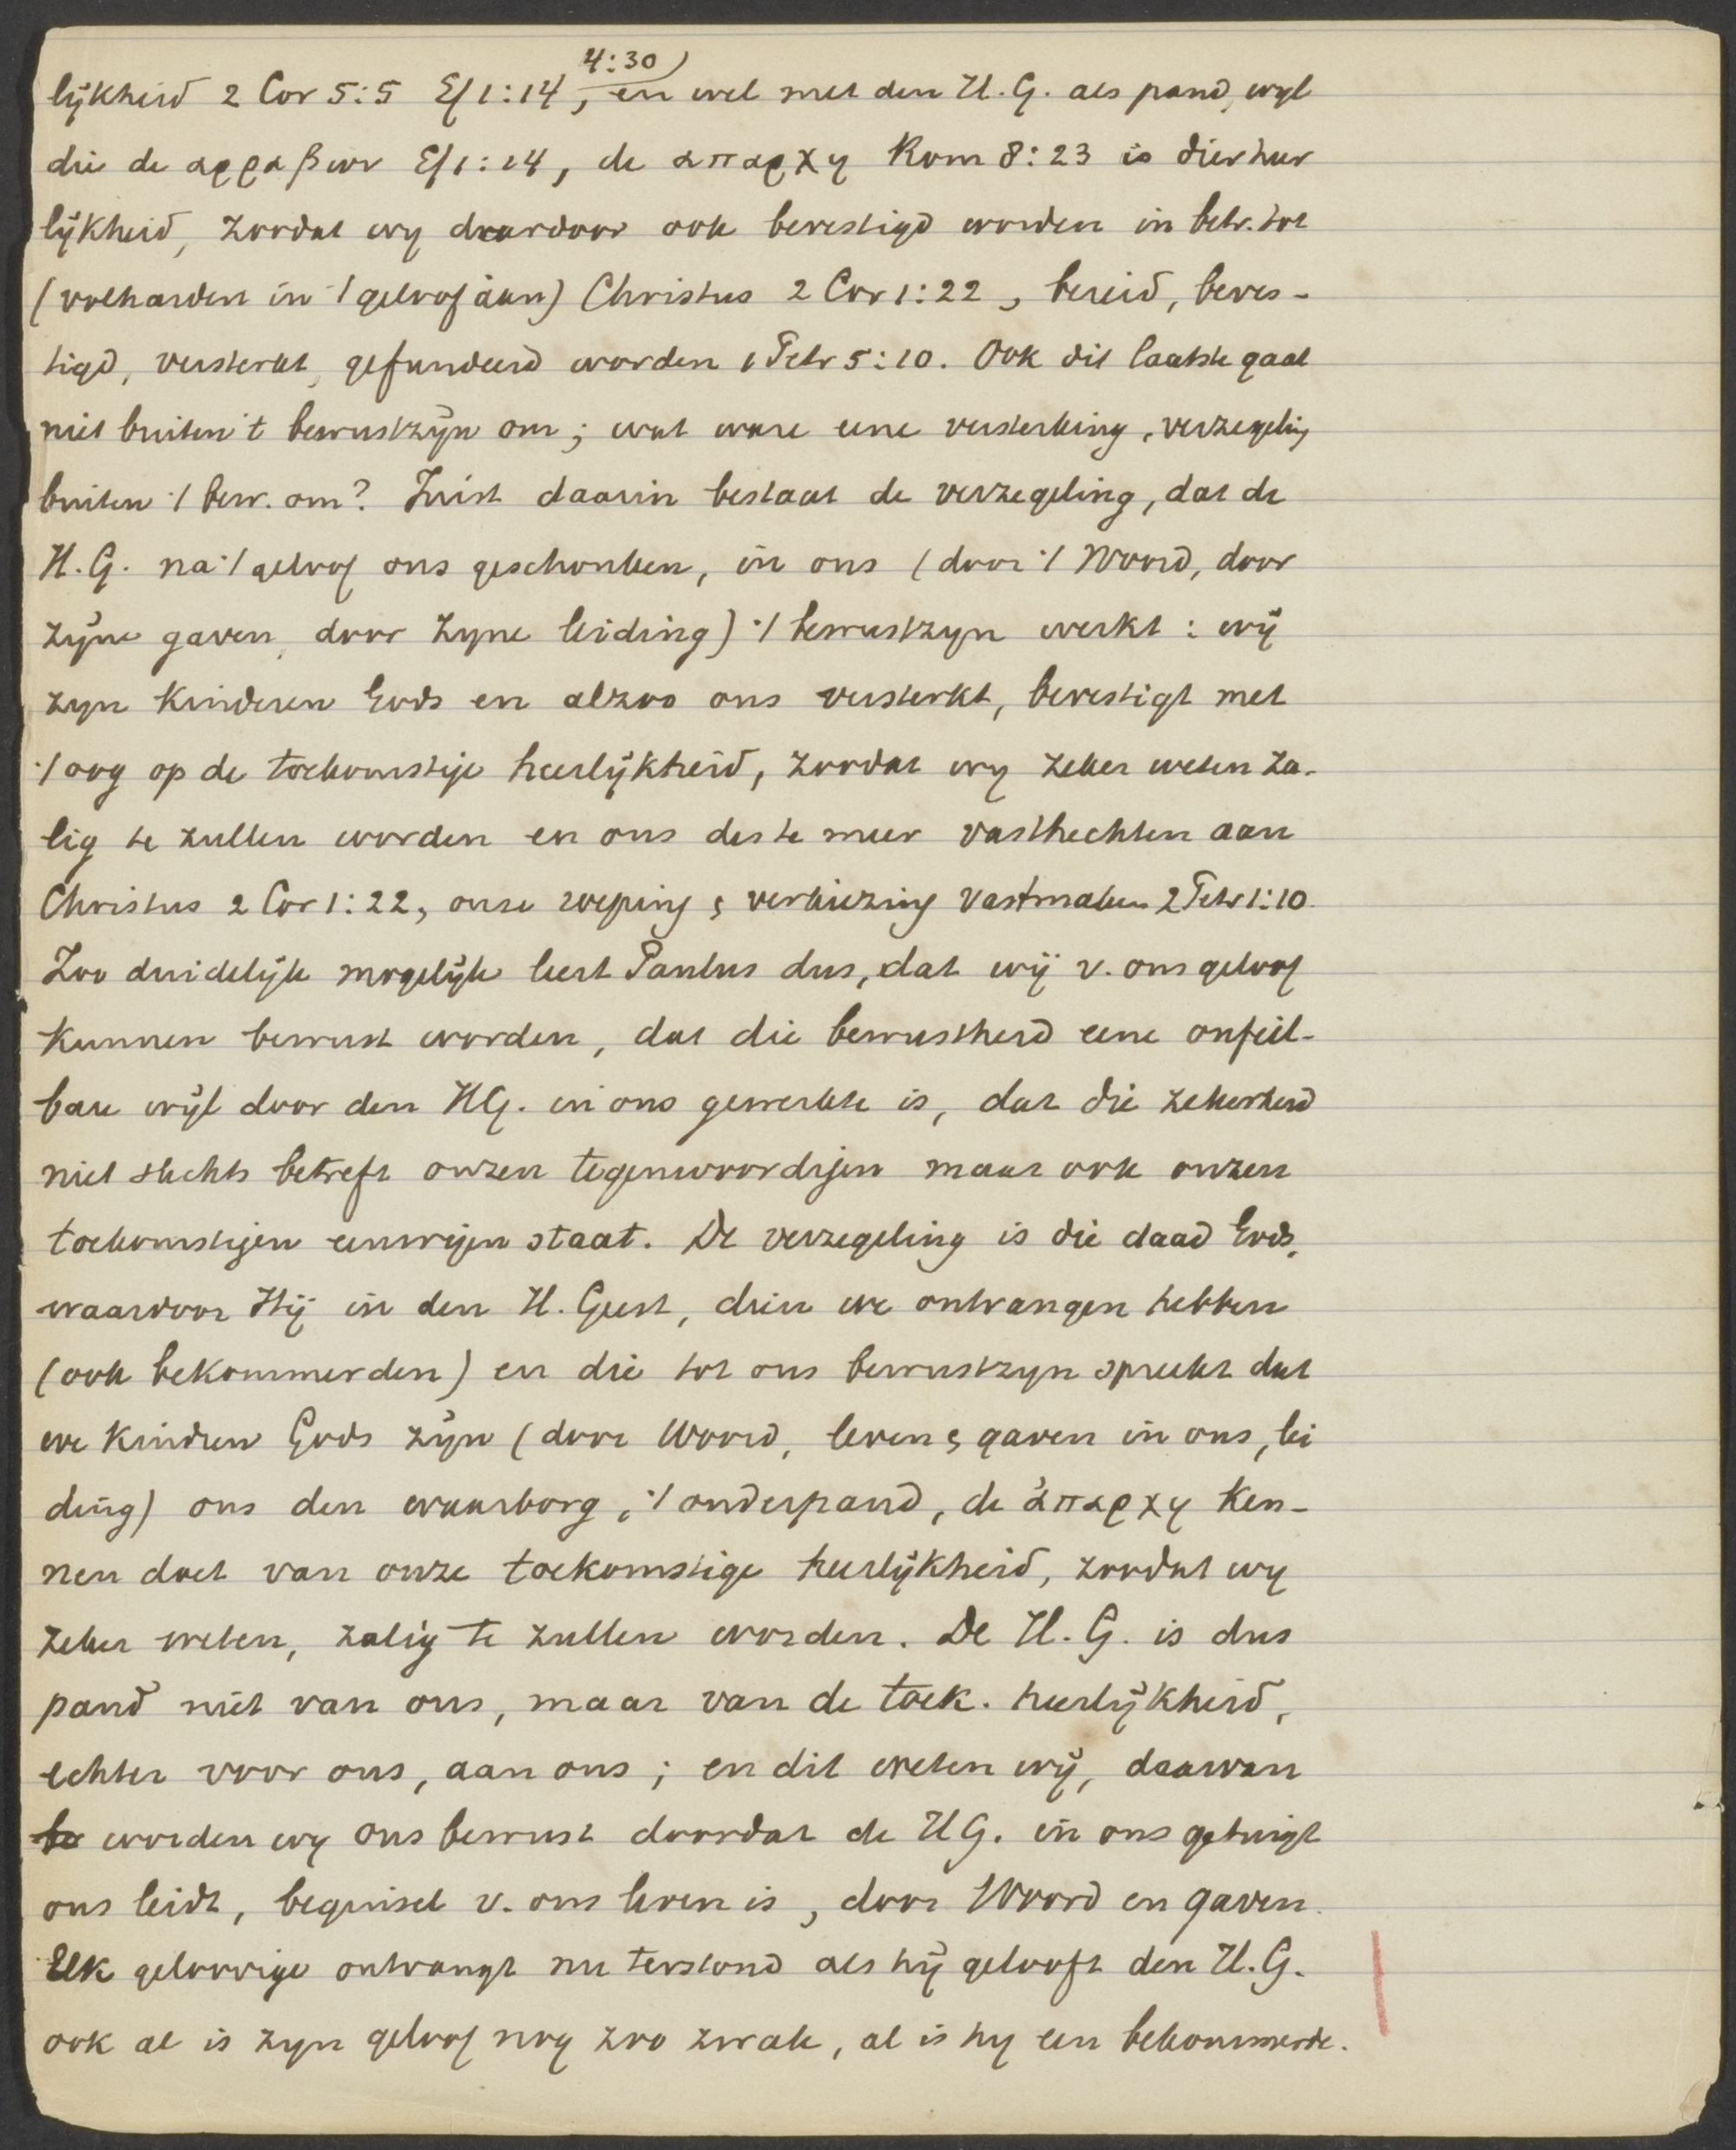 4:30
lijkheid 2 Cor 5:5 Ef 1:14, en wel met den H.G. als pand, wijl
die de αρραβων Ef 1:14, de απαρχη Rom 8:23 is dier heer
lijkheid, zoodat wy daardoor ook bevestigd worden in betr. tot
(volharden in 't geloof aan) Christus 2 Cor 1:22, bereid, beves-
tigd, versterkt, gefundeerd worden 1 Petr 5:10. Ook dit laatste gaat
niet buiten 't bewustzijn om; wat ware eene versterking, verzegeling
buiten 't bew. om? Juist daarin bestaat de verzegeling, dat de
H.G. na 't geloof ons geschonken, in ons (door 't Woord, door
zijne gaven, door zyne leiding) 't bewustzyn werkt: wij
zyn kinderen Gods en alzoo ons versterkt, bevestigt met
't oog op de toekomstige heerlijkheid, zoodat wy zeker weten za-
lig te zullen worden en ons des te meer vasthechten aan
Christus 2 Cor 1:22, onze roeping & verkiezing vastmaken 2 Petr 1:10.
Zoo duidelijk mogelijk leert Paulus dus, dat wij v. ons geloof
kunnen bewust worden, dat die bewustheid eene onfeil-
bare wijl door den HG. in ons gewerkte is, dat die zekerheid
niet slechts betreft onzen tegenwoordigen maar ook onzen
toekomstigen eeuwigen staat. De verzegeling is die daad Gods,
waardoor Hij in den H. Geest, dien we ontvangen hebben
(ook bekommerden) en die tot ons bewustzyn spreekt dat
we kindren Gods zijn (door Woord, leven & gaven in ons, lei
ding) ons den waarborg, 't onderpand, de ἀπαρχη ken-
nen doet van onze toekomstige heerlijkheid, zoodat wy
zeker weten, zalig te zullen worden. De H.G. is dus
pand niet van ons, maar van de toek. heerlijkheid,
echter voor ons, aan ons; en dit weten wij, daarvan
be worden wy ons bewust doordat de HG. in ons getuigt
ons leidt, beginsel v. ons leven is, door Woord en gaven.
Elk geloovige ontvangt nu terstond als hij gelooft den H.G.
ook al is zyn geloof nog zoo zwak, al is hy een bekommerde.